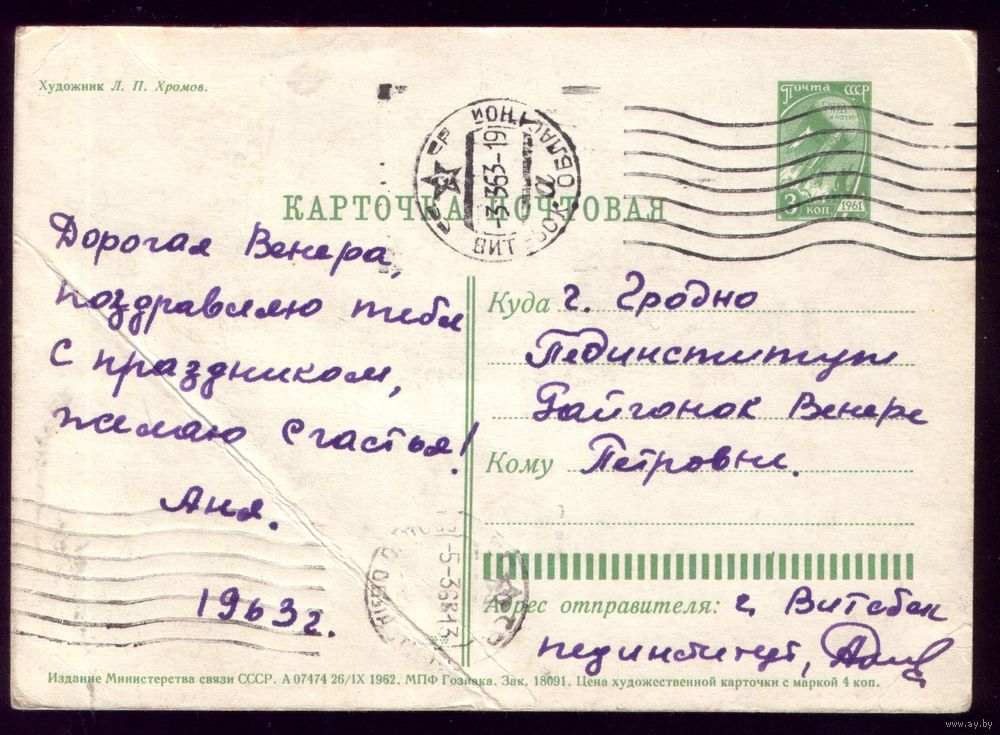 Художник Л. П. Хромов.
Почта СССР
3 коп. 1961
КАРТОЧКА ПОЧТОВАЯ
-3-363-19
Дорогая Венера,
поздравляю тебя
с праздником,
желаю счастья!
Аня.
1963 г.
Куда г. Гродно
Пединститут
Гайгонок Венере
Кому Петровне.
-5-36313
Адрес отправителя: г. Витебск
пединститут,
Издание Министерства связи СССР. А 07474 26/IX 1962. МПФ Гознака. Зак. 18091. Цена художественной карточки с маркой 4 коп.
www.ay.by